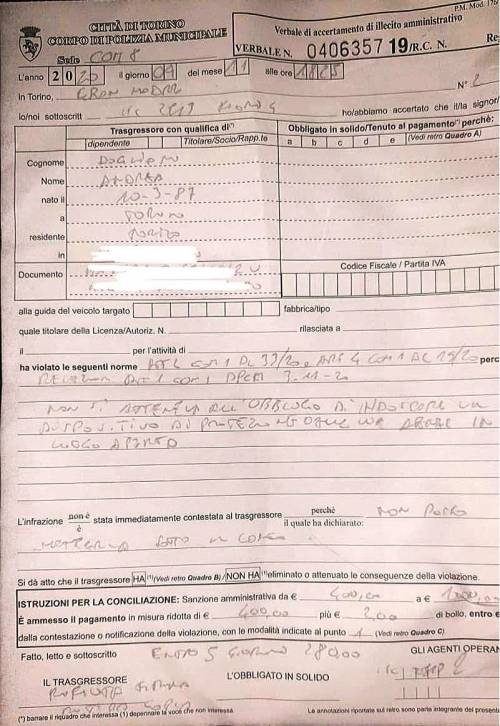 P.M. Mod. 178
CITTÀ DI TORINO
CORPO DI POLIZIA MUNICIPALE
Verbale di accertamento di illecito amministrativo
Sede COM 8
VERBALE N. 0406357 19/R.C. N. Reg
L'anno 2020 il giorno 09 del mese 11 alle ore
N° 2
in Torino, GRAN MADRE
Io/noi sottoscritt ho/abbiamo accertato che il/la signor/
Trasgressore con qualifica di(*)
Obbligato in solido/Tenuto al pagamento(*) perché:
dipendente Titolare/Socio/Rapp.te a b c d e (Vedi retro Quadro A)
Cognome
Nome ANDREA
nato il 10-3-87
a TORINO
residente TORINO
in
Documento
Codice Fiscale / Partita IVA
alla guida del veicolo targato fabbrica/tipo
quale titolare della Licenza/Autoriz. N. rilasciata a
il per l'attività di
ha violato le seguenti norme COM 1 DL 33/20, ART 4 COM 1 DL 19/20 perc
COM 1 DPCM 3-11-20
NON SI ATTENEVA ALL'OBBLIGO DI INDOSSARE UN
DISPOSITIVO DI PROTEZIONE DELLE VIE AEREE IN
LUOGO APERTO
L'infrazione non è / è stata immediatamente contestata al trasgressore perchè / il quale ha dichiarato: NON POSSO
METTERLA
Si dà atto che il trasgressore HA (*)(Vedi retro Quadro B) / NON HA (*)eliminato o attenuato le conseguenze della violazione.
ISTRUZIONI PER LA CONCILIAZIONE: Sanzione amministrativa da € 400,00 a € 1000,00
È ammesso il pagamento in misura ridotta di € 400,00 più € 2,00 di bollo, entro
dalla contestazione o notificazione della violazione, con le modalità indicate al punto 1 (Vedi retro Quadro C)
Fatto, letto e sottoscritto ENTRO 5 GIORNI 280,00 GLI AGENTI OPERAN
IL TRASGRESSORE L'OBBLIGATO IN SOLIDO
RIFIUTA FIRMA
(*) barrare il riquadro che interessa (1) depennare la voce che non interessa. Le annotazioni riportate sul retro sono parte integrante del presente